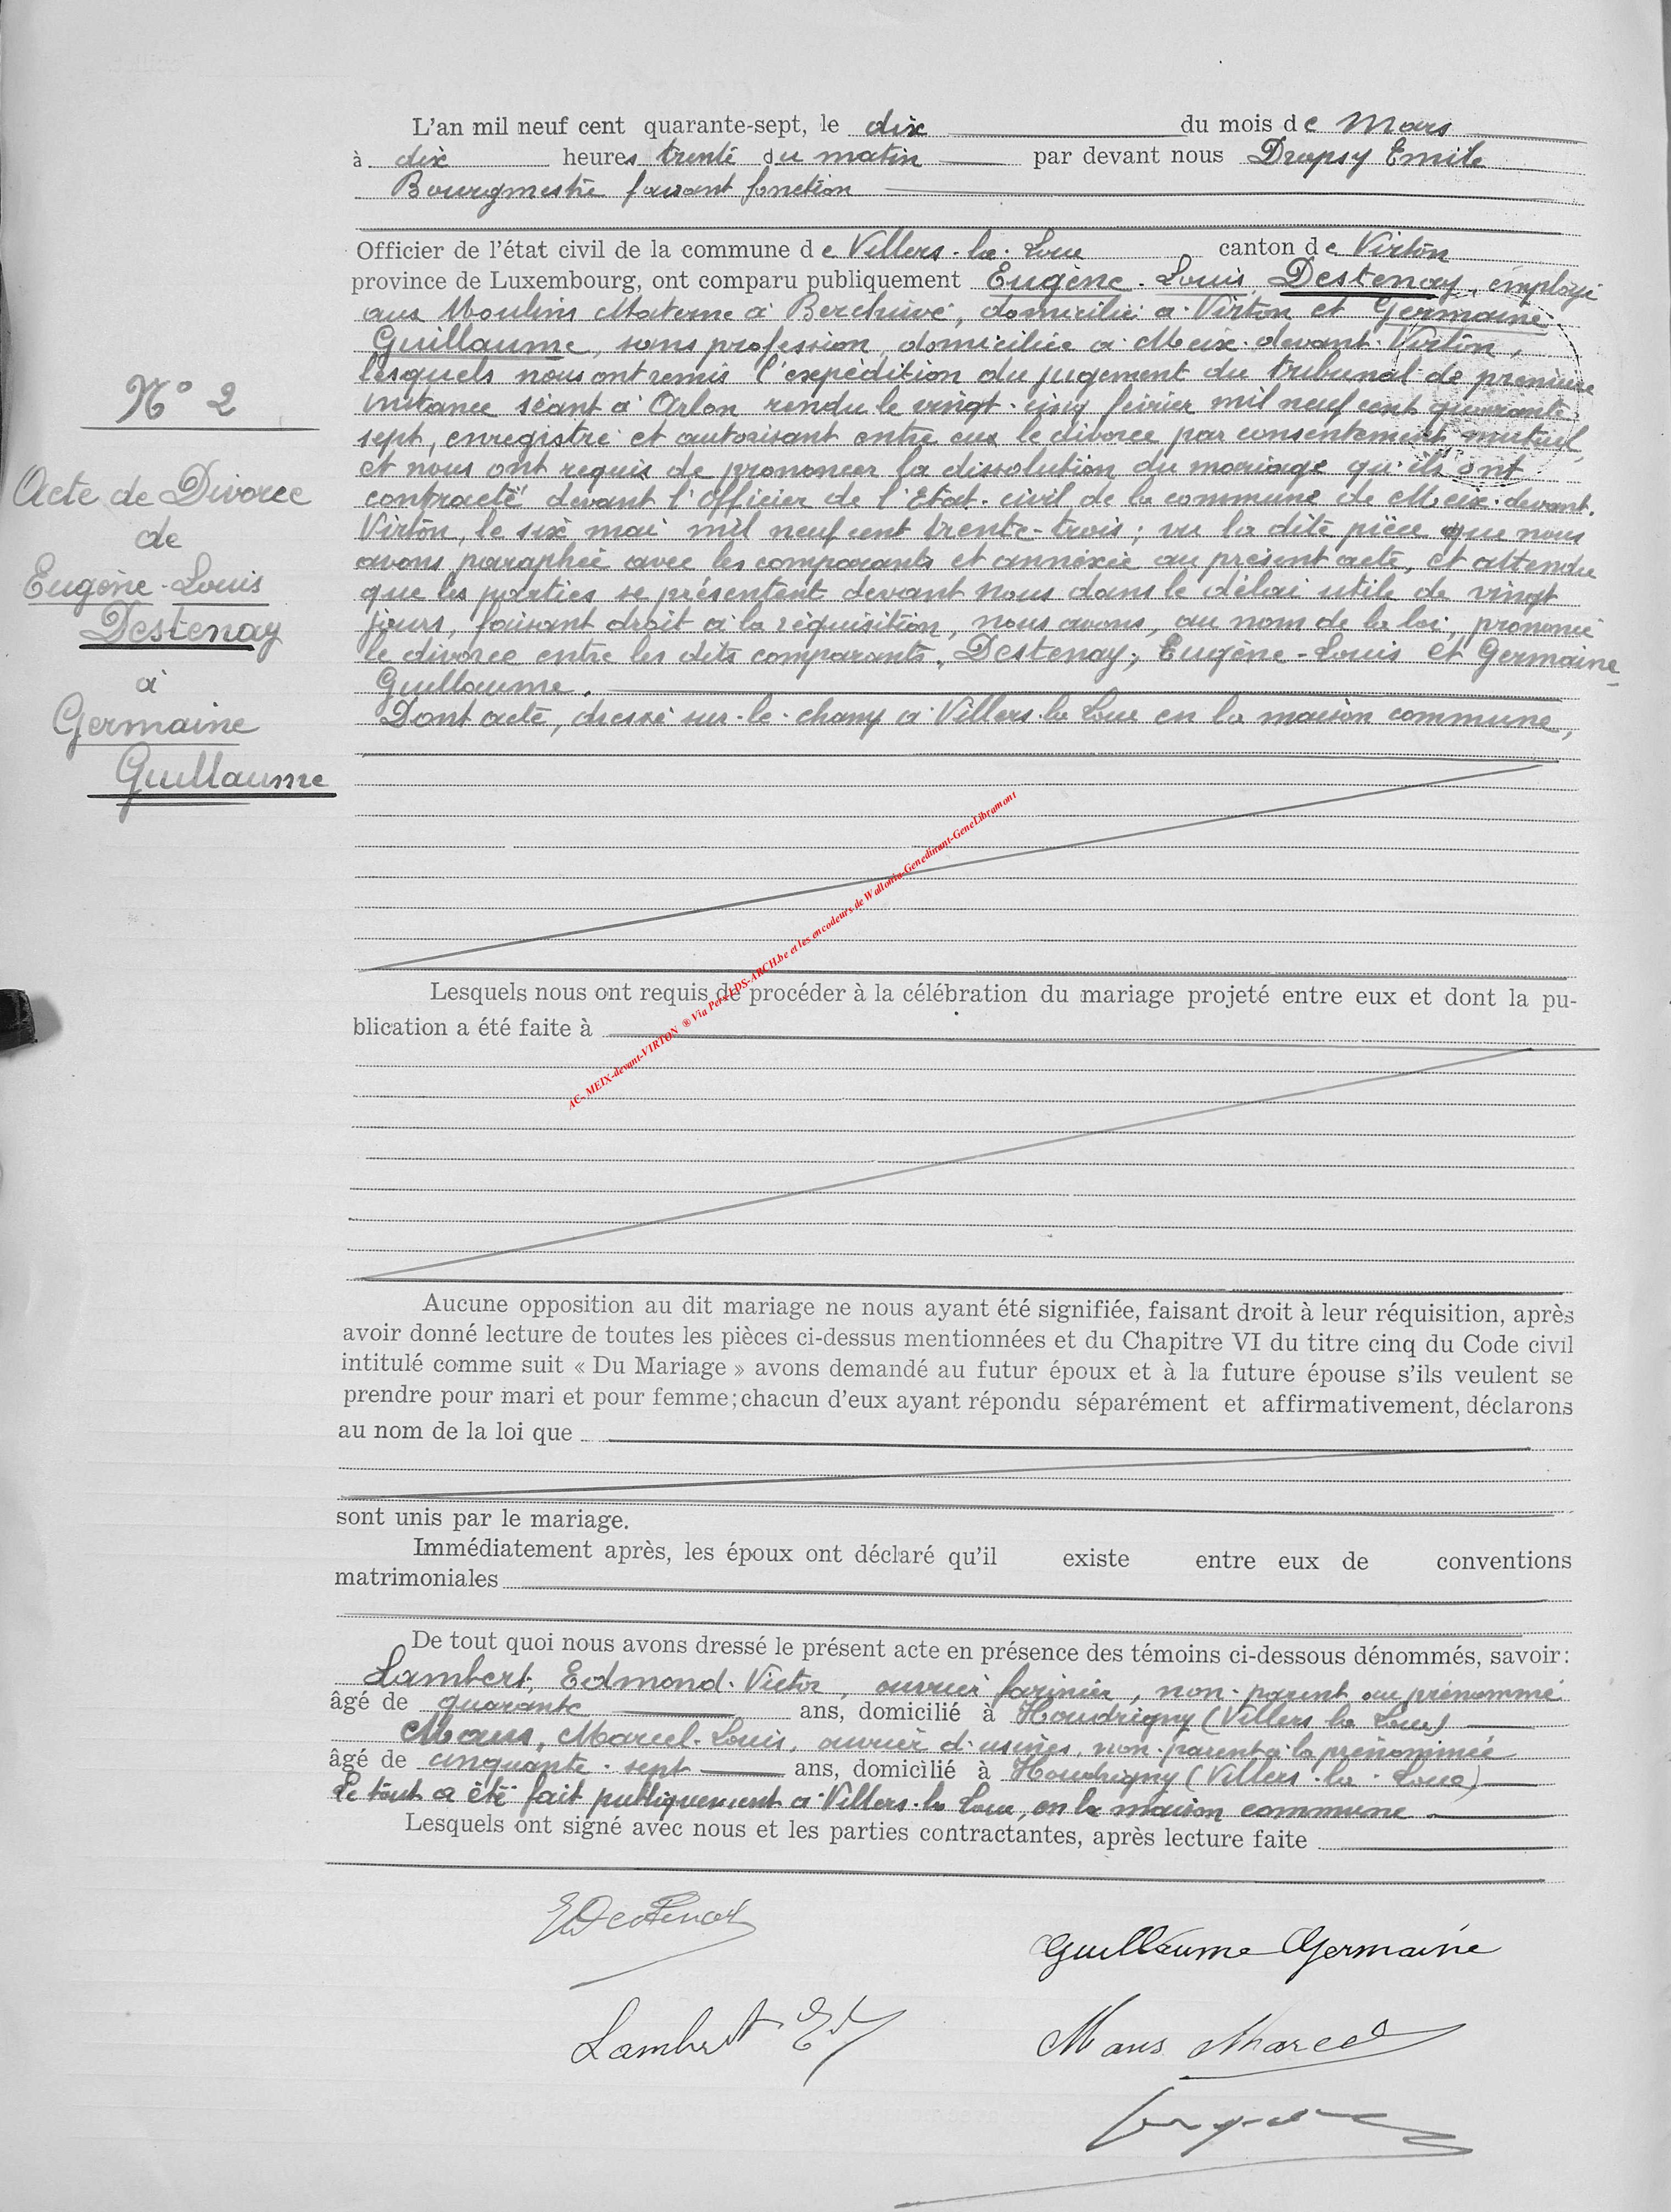 L'an mil neuf cent quarante-sept, le dix du mois de Mars
à dix heures trente du matin par devant nous Dropsy Emile
Bourgmestre faisant fonction
Officier de l'état civil de la commune de Villers-la-Loue canton de Virton
province de Luxembourg, ont comparu publiquement Eugène-Louis Destenay, employé
aux Moulins Materne à Berchiwé, domicilié à Virton et Germaine
Guillaume, sans profession, domiciliée à Meix-devant-Virton,
lesquels nous ont remis l'expédition du jugement du tribunal de première
instance séant à Arlon rendu le vingt-cinq février mil neuf cent quarante
sept, enregistré et autorisant entre eux le divorce par consentement mutuel,
et nous ont requis de prononcer la dissolution du mariage qu'ils ont
contracté devant l'Officier de l'Etat-civil de la commune de Meix-devant-
Virton, le six mai mil neuf cent trente-trois; vu la dite pièce que nous
avons paraphée avec les comparants et annexée au présent acte, et attendu
que les parties se présentent devant nous dans le délai utile de vingt
jours, faisant droit à la réquisition, nous avons, au nom de la loi, prononcé
le divorce entre les dits comparants, Destenay, Eugène-Louis et Germaine
Guillaume.
Dont acte, dressé sur-le-champ à Villers-la-Loue en la maison commune,
N° 2
Acte de Divorce
de
Eugène-Louis
Destenay
à
Germaine
Guillaume
AC- MEIX-devant-VIRTON ® Via Pers LDS-ARCH.be et les encodeurs de Wallonia-Genedinant-GeneLibramont
Lesquels nous ont requis de procéder à la célébration du mariage projeté entre eux et dont la pu-
blication a été faite à
Aucune opposition au dit mariage ne nous ayant été signifiée, faisant droit à leur réquisition, après
avoir donné lecture de toutes les pièces ci-dessus mentionnées et du Chapitre VI du titre cinq du Code civil
intitulé comme suit « Du Mariage » avons demandé au futur époux et à la future épouse s'ils veulent se
prendre pour mari et pour femme; chacun d'eux ayant répondu séparément et affirmativement, déclarons
au nom de la loi que
sont unis par le mariage.
Immédiatement après, les époux ont déclaré qu'il existe entre eux de conventions
matrimoniales
De tout quoi nous avons dressé le présent acte en présence des témoins ci-dessous dénommés, savoir:
Lambert, Edmond-Victor, ouvrier farinier, non-parent au prénommé
âgé de quarante ans, domicilié à Houdrigny (Villers la Loue)
Maus, Marcel-Louis, ouvrier d'usines, non-parent à la prénommée
âgé de cinquante-sept ans, domicilié à Houdrigny (Villers-la-Loue)
Le tout a été fait publiquement à Villers-la Loue, en la maison commune.
Lesquels ont signé avec nous et les parties contractantes, après lecture faite
EDestenay
Guillaume Germaine
Lambert Ed
Maus Marcel